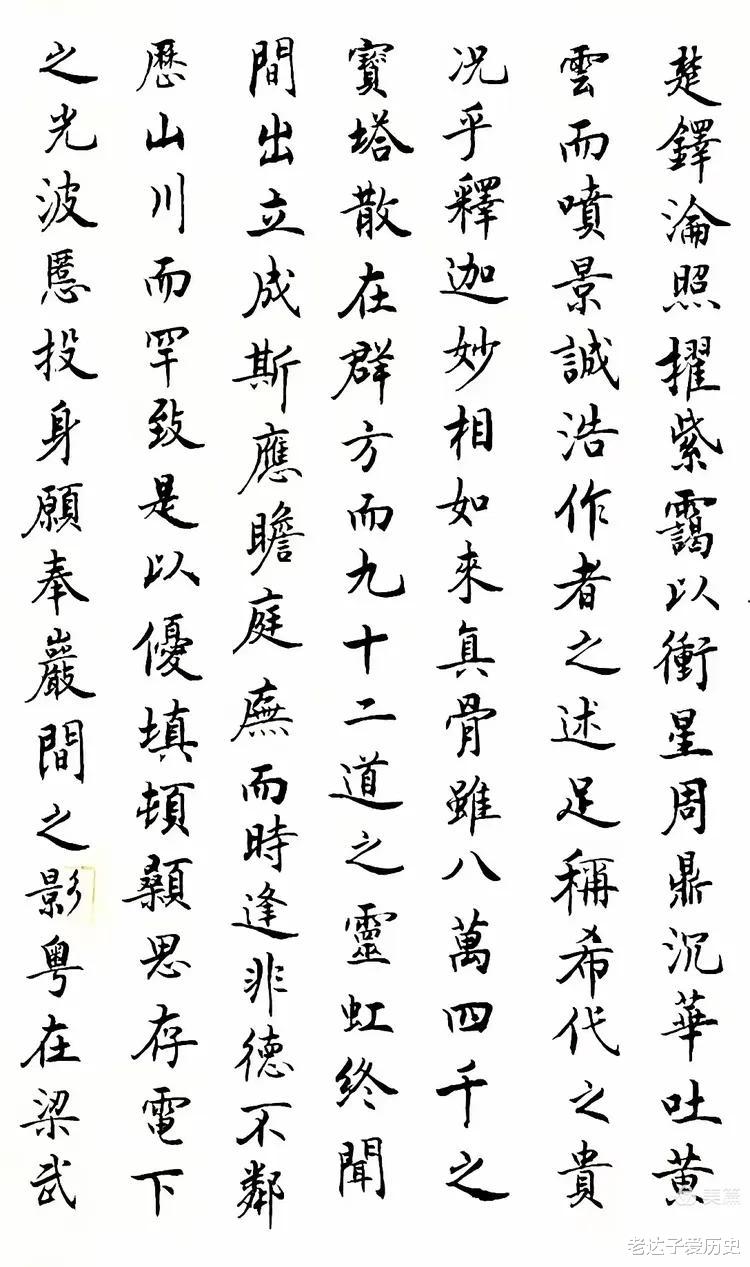 楚鐸淪照擢紫靄以衝星周鼎沉華吐黄
雲而噴景誠浩作者之述足稱希代之貴
况乎釋迦妙相如來真骨雖八萬四千之
寶塔散在群方而九十二道之靈虹終聞
間出立成斯應瞻庭廡而時逢非德不鄰
歷山川而罕致是以優填頓顙思存電下
之光波慝投身願奉巖間之影粤在梁武
美篇
老达子爱历史